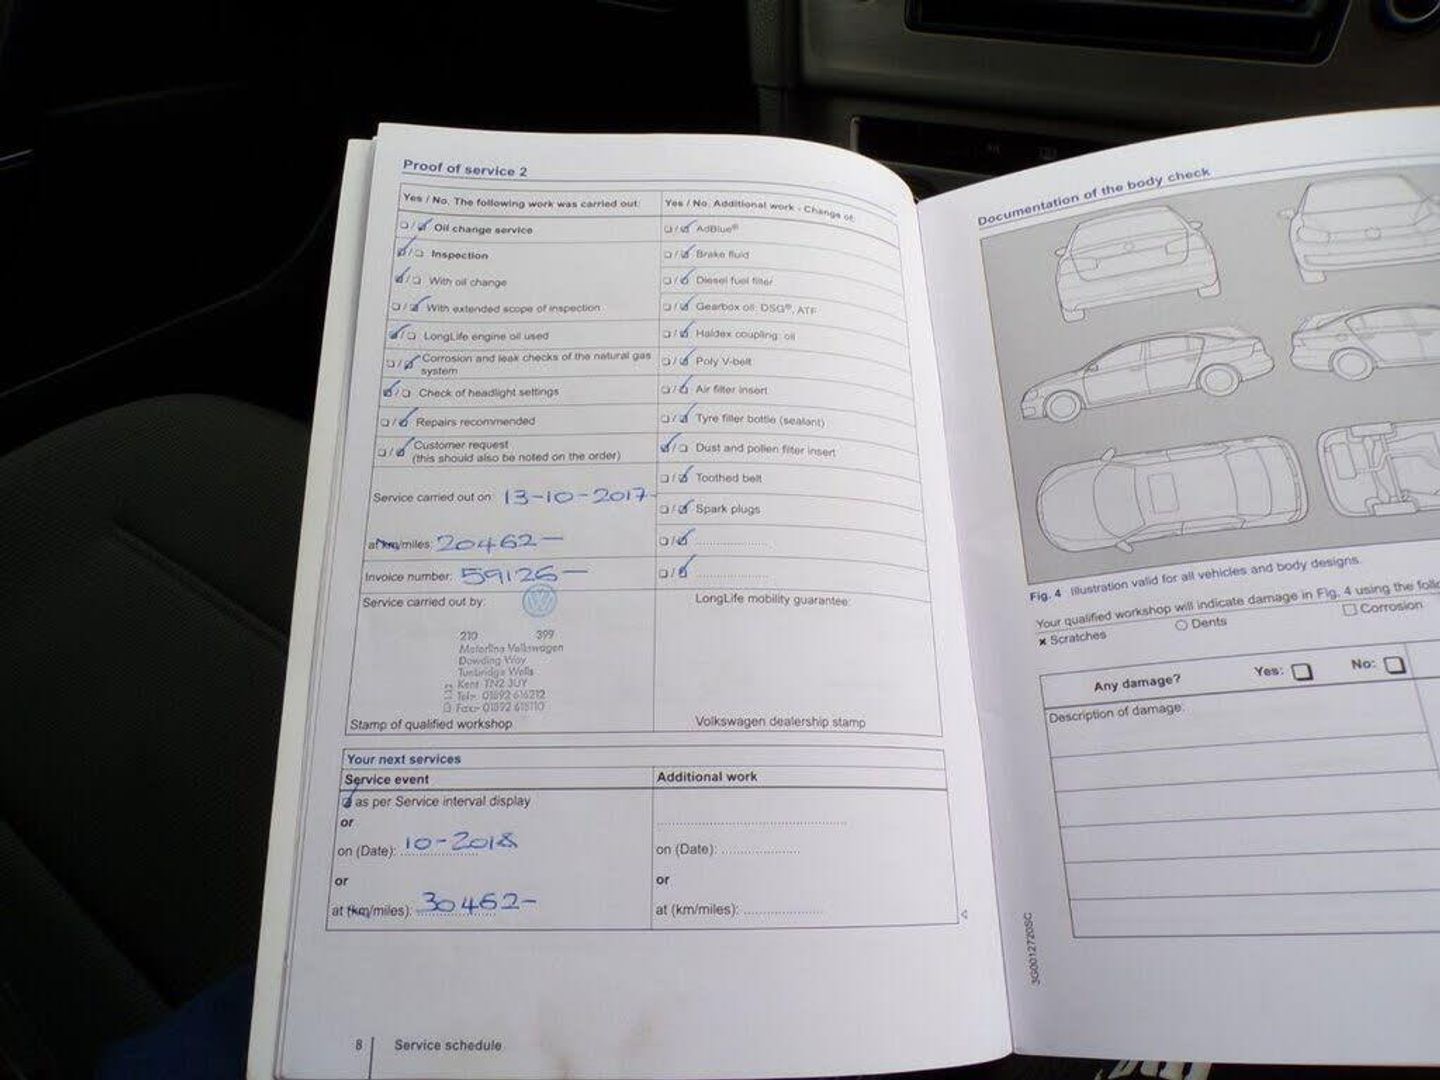 Proof of service 2
Yes / No. The following work was carried out:
Oil change service
Inspection
With oil change
With extended scope of inspection
LongLife engine oil used
Corrosion and leak checks of the natural gas
system
Check of headlight settings
Repairs recommended
Customer request
(this should also be noted on the order)
Service carried out on 13-10-2017-
at km/miles: 20462-
Invoice number: 59126-
Service carried out by:
210 399
Motorline Volkswagen
Dowding Way
Tunbridge Wells
Kent TN2 3UY
Tel:- 01892 616212
Fax:- 01892 618110
Stamp of qualified workshop
Yes / No. Additional work - Change of:
AdBlue®
Brake fluid
Diesel fuel filter
Gearbox oil: DSG®, ATF
Haldex coupling: oil
Poly V-belt
Air filter insert
Tyre filler bottle (sealant)
Dust and pollen filter insert
Toothed belt
Spark plugs
LongLife mobility guarantee:
Volkswagen dealership stamp
Your next services
Service event
as per Service interval display
or
on (Date): 10-2018
or
at (km/miles): 30462-
Additional work
on (Date):
or
at (km/miles):
8 Service schedule
Documentation of the body check
Fig. 4 Illustration valid for all vehicles and body designs.
Your qualified workshop will indicate damage in Fig. 4 using the
× Scratches ○ Dents □ Corrosion
Any damage? Yes: No:
Description of damage:
3G0012720SC